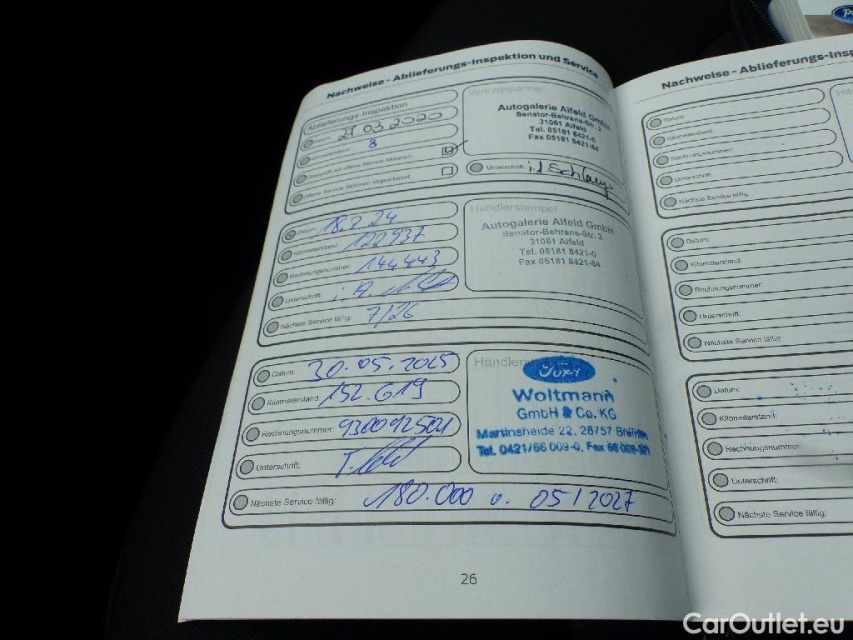 Nachweise - Ablieferungs-Inspektion und Service
Ablieferungs-Inspektion
Vertragspartner
03.2020
8
Autogalerie Alfeld GmbH
Senator-Behrens-Str. 2
31061 Alfeld
Tel. 05181 8421-0
Fax 05181 8421-64
Unterschrift:
Datum:
18.2.24
Kilometerstand:
122937
Rechnungsnummer:
144443
Unterschrift:
i. A.
Nächste Service fällig:
7/26
Händlerstempel
Autogalerie Alfeld GmbH
Senator-Behrens-Str. 2
31061 Alfeld
Tel. 05181 8421-0
Fax 05181 8421-64
Datum:
30.05.2025
Kilometerstand:
152.619
Rechnungsnummer:
Unterschrift:
Ford
Woltmann
GmbH & Co. KG
Martinsheide 22, 28757 Bremen
Tel. 0421/66 009-0, Fax
Nächste Service fällig:
180.000 o. 05/2027
26
Nachweise - Ablieferungs-Insp
Datum:
Kilometerstand:
Rechnungsnummer:
Unterschrift:
Nächste Service fällig:
Datum:
Kilometerstand:
Rechnungsnummer:
Unterschrift:
Nächste Service fällig:
Datum:
Kilometerstand:
Rechnungsnummer:
Unterschrift:
Nächste Service fällig:
CarOutlet.eu